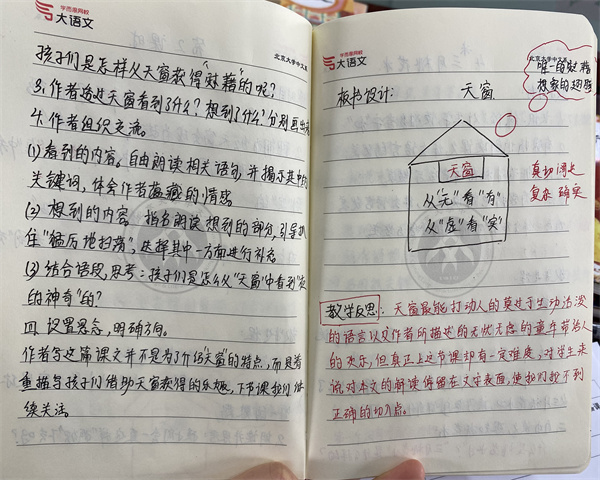 学而思网校
大语文
北京大学中文系
孩子们是怎样从天窗获得"慰藉"的呢?
3.作者透过天窗看到了什么?想到了什么?分别画出来
4.作者组织交流。
(1)看到的内容。自由朗读相关语句,并揭示其中的
关键词,体会作者蕴藏的情感
(2)想到的内容 指名朗读想到的部分,引导抓
住"猛厉地扫荡",选择其中一方面进行补充
(3)结合语段,思考:孩子们是怎么从"天窗"中看到"夜
的神奇"的?
四、设置悬念,明确方向。
作者写这篇课文并不是为了介绍"天窗"的特点,而是着
重描写孩子们借助天窗获得的乐趣,下节课我们继
续关注。
学而思网校
大语文
北京大学中文系
唯一的慰藉
想象的翅膀
板书设计:
天窗
天窗
从"无"看"有"
从"虚"看"实"
复杂 确实
教学反思:天窗最能打动人的莫过于生动活泼
的语言以及作者所描述的无忧无虑的童年带给人
的欢乐,但真正上这节课却有一定难度,对学生来
说对本文的解读停留在文字表面,使我们找不到
正确的切入点。